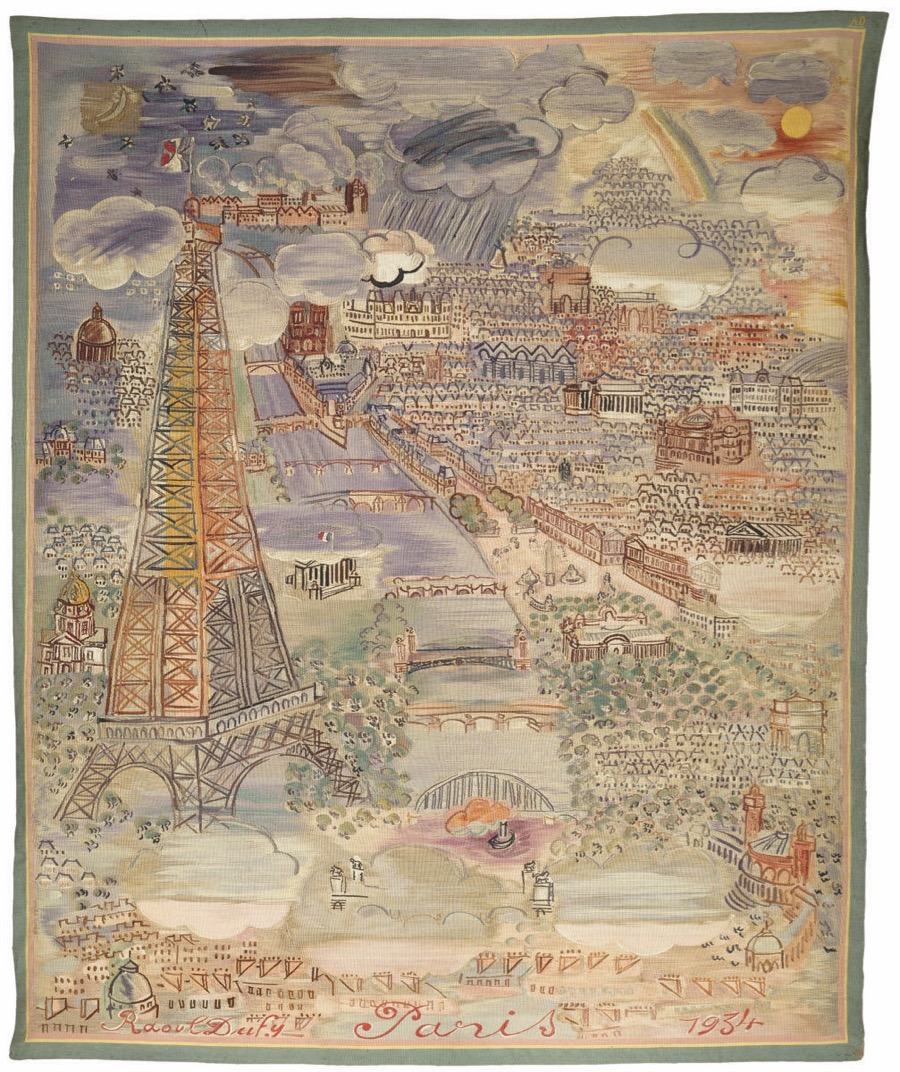 AD
Raoul Dufy Paris 1934